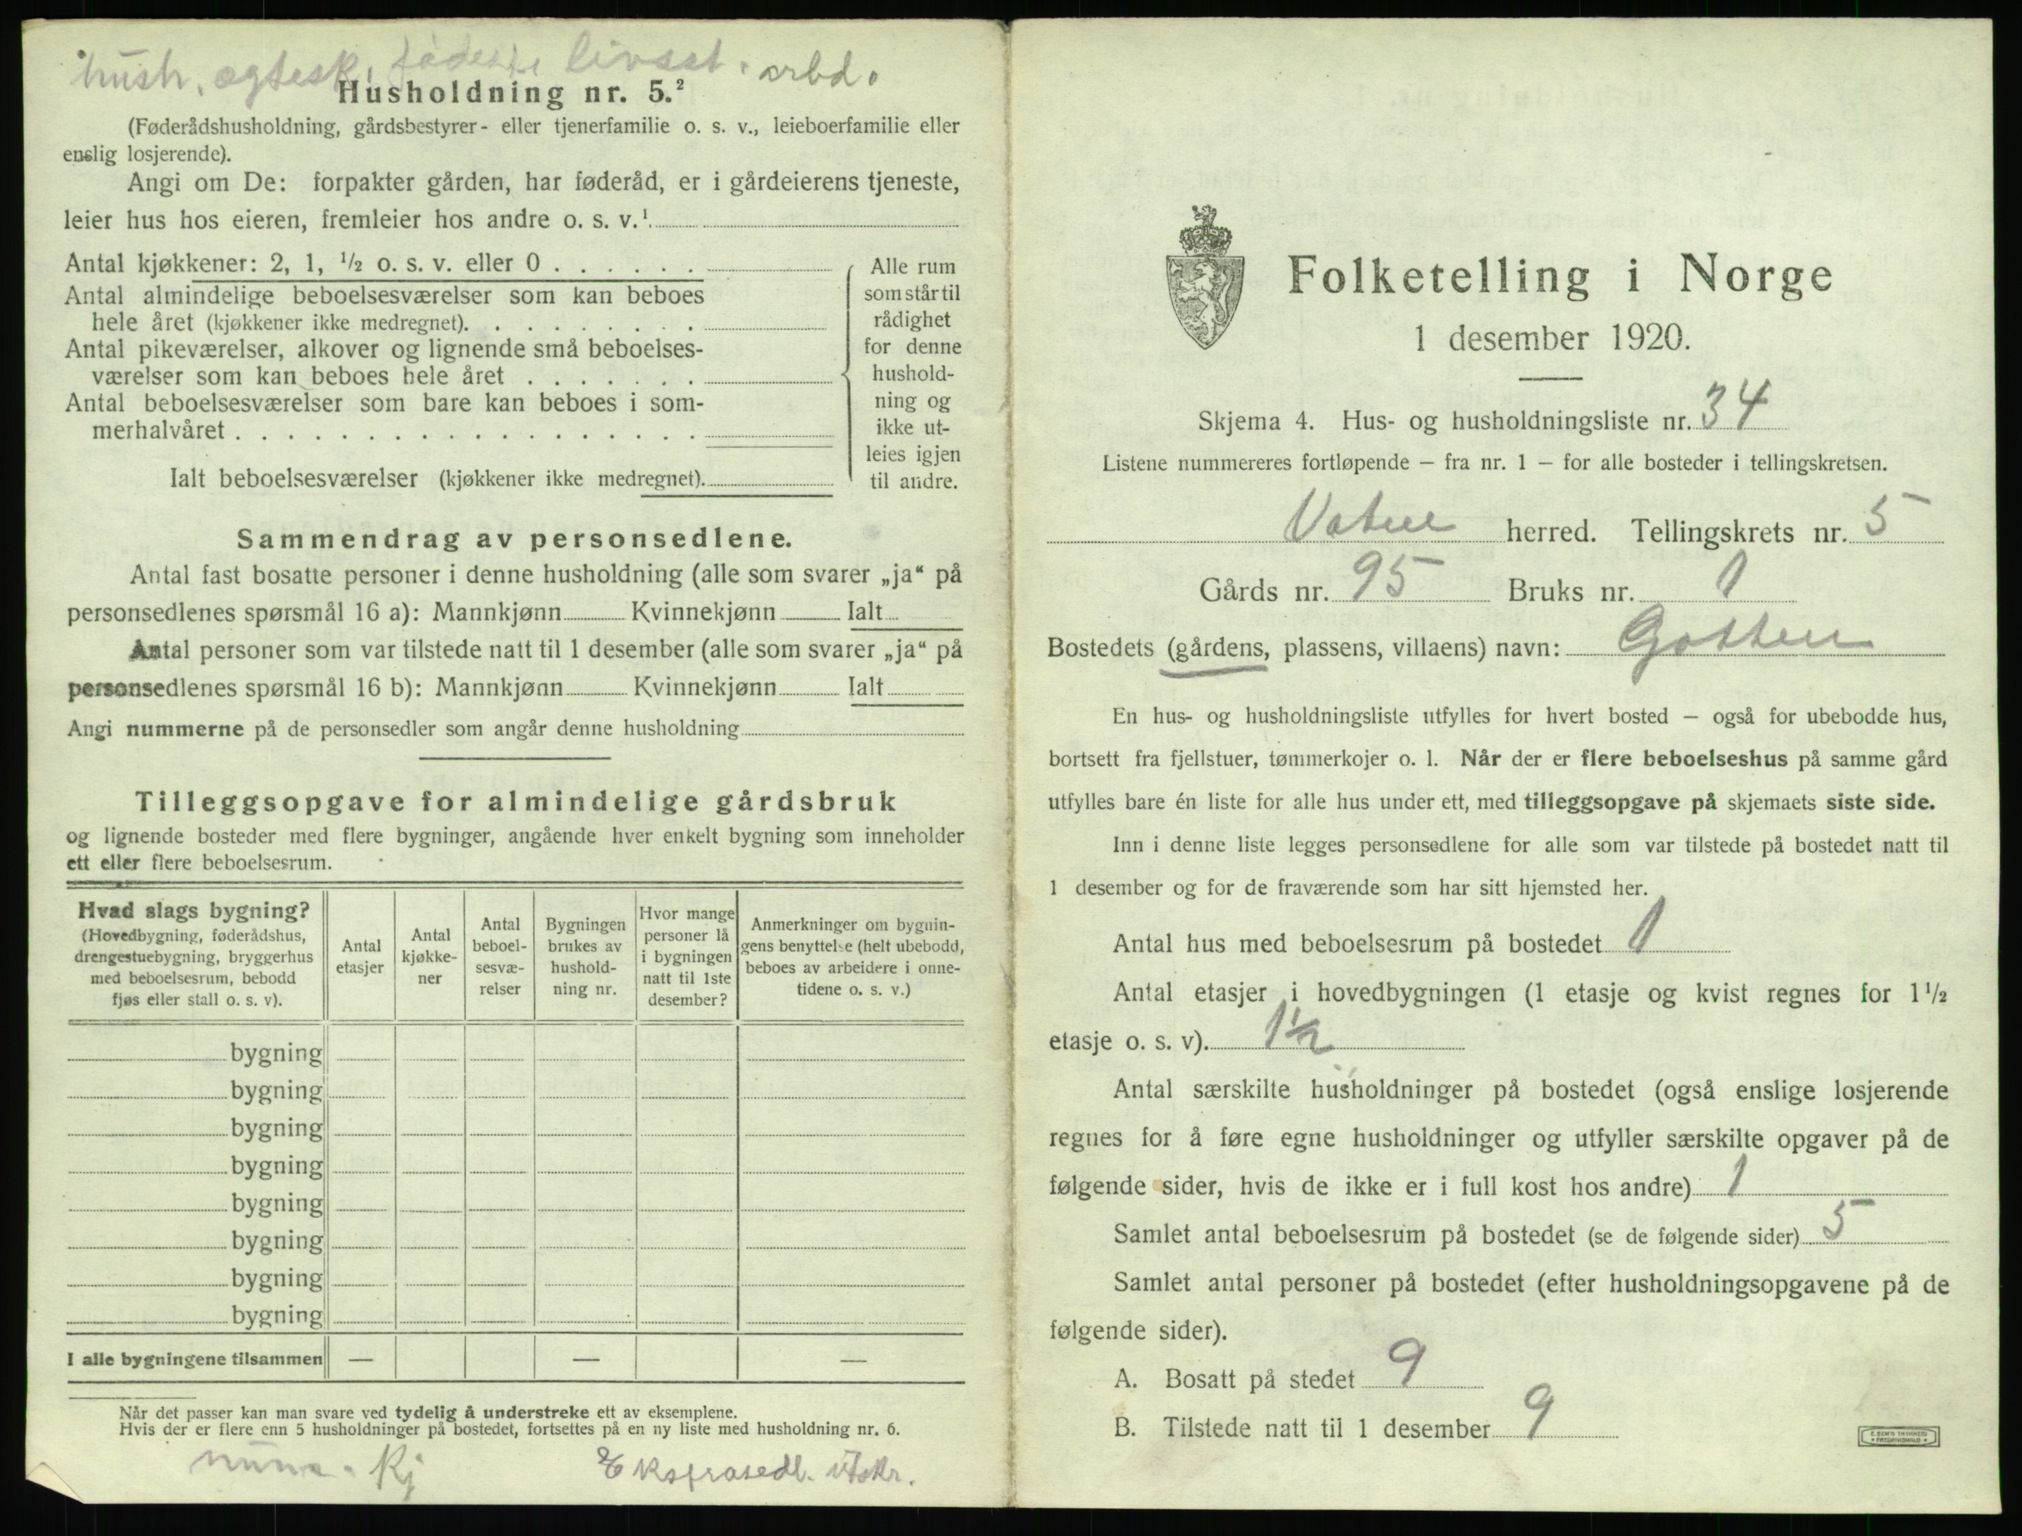 hush. ægtesk. fødeste livsst. arbd.
Husholdning nr. 5.²
(Føderådshusholdning, gårdsbestyrer- eller tjenerfamilie o. s. v., leieboerfamilie eller
enslig losjerende).
Angi om De: forpakter gården, har føderåd, er i gårdeierens tjeneste,
leier hus hos eieren, fremleier hos andre o. s. v.¹
Antal kjøkkener: 2, 1, ½ o. s. v. eller 0 . . . . . .
Antal almindelige beboelsesværelser som kan beboes
hele året (kjøkkener ikke medregnet). . . . . . . . .
Antal pikeværelser, alkover og lignende små beboelses-
værelser som kan beboes hele året . . . . . . .
Antal beboelsesværelser som bare kan beboes i som-
merhalvåret . . . . . . . . . . . . . . . . . .
Ialt beboelsesværelser (kjøkkener ikke medregnet).
Alle rum
som står til
rådighet
for denne
hushold-
ning og
ikke ut-
leies igjen
til andre.
Sammendrag av personsedlene.
Antal fast bosatte personer i denne husholdning (alle som svarer „ja“ på
personsedlenes spørsmål 16 a): Mannkjønn Kvinnekjønn Ialt
Antal personer som var tilstede natt til 1 desember (alle som svarer „ja“ på
personsedlenes spørsmål 16 b): Mannkjønn Kvinnekjønn Ialt
Angi nummerne på de personsedler som angår denne husholdning
Tilleggsopgave for almindelige gårdsbruk
og lignende bosteder med flere bygninger, angående hver enkelt bygning som inneholder
ett eller flere beboelsesrum.
Hvad slags bygning?
(Hovedbygning, føderådshus,
drengestuebygning, bryggerhus
med beboelsesrum, bebodd
fjøs eller stall o. s. v).
Antal
etasjer
Antal
kjøkke-
ner
Antal
beboel-
sesvæ-
relser
Bygningen
brukes av
hushold-
ning nr.
Hvor mange
personer lå
i bygningen
natt til 1ste
desember?
Anmerkninger om bygnin-
gens benyttelse (helt ubebodd,
beboes av arbeidere i onne-
tidene o. s. v.)
bygning
bygning
bygning
bygning
bygning
bygning
bygning
bygning
I alle bygningene tilsammen — — —
Når det passer kan man svare ved tydelig å understreke ett av eksemplene.
Hvis der er flere enn 5 husholdninger på bostedet, fortsettes på en ny liste med husholdning nr. 6.
Kj
Folketelling i Norge
1 desember 1920.
Skjema 4. Hus- og husholdningsliste nr. 34
Listene nummereres fortløpende – fra nr. 1 – for alle bosteder i tellingskretsen.
Vatne herred. Tellingskrets nr. 5
Gårds nr. 95 Bruks nr. 1
Bostedets (gårdens, plassens, villaens) navn: Gotten
En hus- og husholdningsliste utfylles for hvert bosted – også for ubebodde hus,
bortsett fra fjellstuer, tømmerkojer o. l. Når der er flere beboelseshus på samme gård
utfylles bare én liste for alle hus under ett, med tilleggsopgave på skjemaets siste side.
Inn i denne liste legges personsedlene for alle som var tilstede på bostedet natt til
1 desember og for de fraværende som har sitt hjemsted her.
Antal hus med beboelsesrum på bostedet 1
Antal etasjer i hovedbygningen (1 etasje og kvist regnes for 1½
etasje o. s. v). 1½
Antal særskilte husholdninger på bostedet (også enslige losjerende
regnes for å føre egne husholdninger og utfyller særskilte opgaver på de
følgende sider, hvis de ikke er i full kost hos andre) 1
Samlet antal beboelsesrum på bostedet (se de følgende sider) 5
Samlet antal personer på bostedet (efter husholdningsopgavene på de
følgende sider).
A. Bosatt på stedet 9
B. Tilstede natt til 1 desember 9